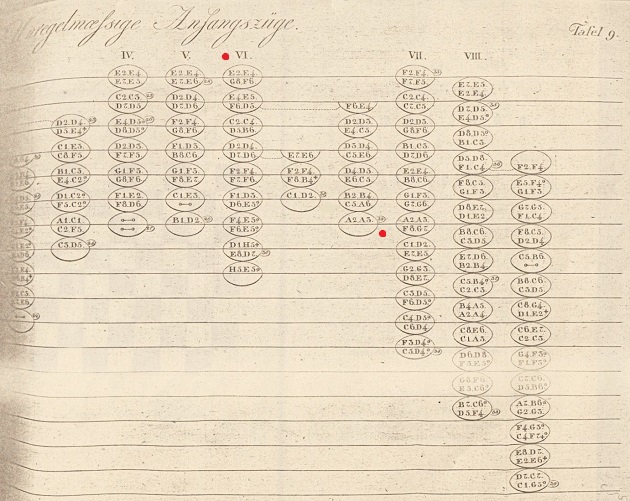 Unregelmæſsige Anfangszüge.
Tafel 9.
IV. V. VI. VII. VIII.
D2.D4.
D5.E4*
C1.E3.
C8.F5.
B1.C3.
E4.C2*
D1.C2*
F3.C2*
A1.C1.
C2.F5.
C3.D5.
E2.E4.
E7.E5.
C2.C3.
D7.D5.
E4.D5*
D8.D5*
D2.D3.
F7.F5.
G1.F3.
G8.F6.
F1.E2.
F8.D6.
E2.E4.
E7.E6.
D2.D4.
D7.D5.
F2.F4.
G8.F6.
F1.D3.
B8.C6.
G1.F3.
F8.E7.
C1.E3.
B1.D2.
E2.E4.
G8.F6.
E4.E5.
F6.D5.
C2.C4.
D5.B6.
D2.D4.
D7.D6.
F2.F4.
F7.F6.
F1.D3.
D6.E5*
F4.E5*
F6.E5*
D1.H5*
E8.D7.
H5.E5*
E7.E6.
F2.F4.
F8.B4*
C1.D2.
F6.E4.
D2.D3.
E4.C5.
D3.D4.
C5.E6.
D4.D5.
E6.C5.
B2.B4.
C5.A6.
A2.A3.
F2.F4.
F7.F5.
C2.C4.
C7.C5.
D2.D3.
G8.F6.
B1.C3.
D7.D6.
E2.E4.
B8.C6.
G1.F3.
G7.G6.
A2.A3.
F8.G7.
C1.D2.
E7.E5.
G2.G3.
D8.E7.
C3.D5.
F6.D5*
C4.D5*
C6.D4.
F3.D4*
C5.D4*
E7.E5.
E2.E4.
D7.D5.
E4.D5*
D8.D5*
B1.C3.
D5.D8.
F1.C4.
F8.C5.
G1.F3.
D8.E7.
D1.E2.
B8.C6.
C3.D5.
E7.D6.
B2.B4.
C5.B4*
C2.C3.
B4.A5.
A2.A4.
C8.E6.
C1.A3.
D6.D8.
G8.F6.
B7.C6*
D5.F4.
F2.F4.
E5.F4*
G1.F3.
G7.G5.
F1.C4.
F8.C5.
D2.D4.
C5.B6.
B8.C6.
C3.D5.
C8.G4.
D1.E2*
C6.E7.
C2.C3.
G4.F3*
D5.B6*
A7.B6*
G2.G3.
F4.G3*
C4.F7*
E8.D7.
E2.E6*
D7.C7.
C1.G5*